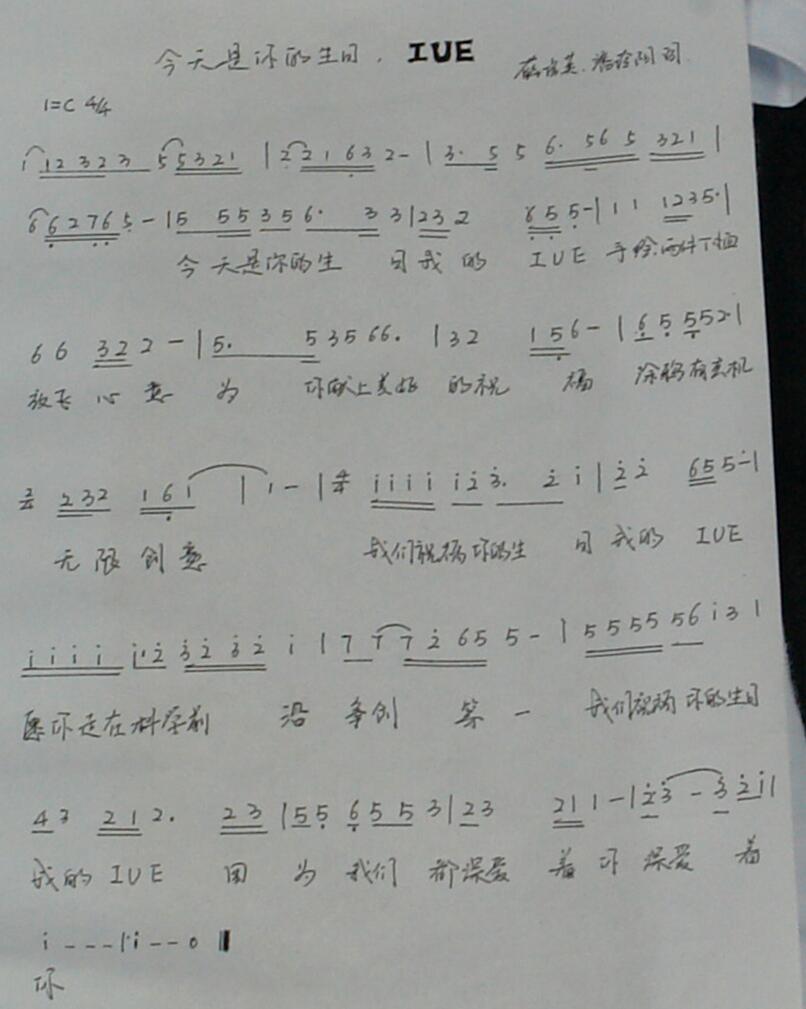 今天是你的生日，IUE 词
1=C 4/4
1 12323 55321 | 2 21632- | 3. 5 5 6. 565 321 |
6 62765 - | 5 55 35 6. 3 3 | 23 2 655- | 1 1 1235. |
今天是你的生 日我的 IUE
66 322 - | 5. 53566. | 32 156- | 65 552. |
放飞心意为 你献上美好 的祝福 有玄机
232 161 | 1 - | 4/4 1111 123. 21 | 22 655- |
无限创意 我们祝福你的生 日我的 IUE
1111 1.2 3232 1 | 7 7 7265 5 - | 5555 56 1 3 |
愿你走在科学前 沿 争创 第一 我们祝福你的生日
43 212. 23 | 55 655 3 | 23 211- | 23 - 321 |
我的IUE 因为我们都深爱着你深爱着
1 - - - | 1 - - 0
你